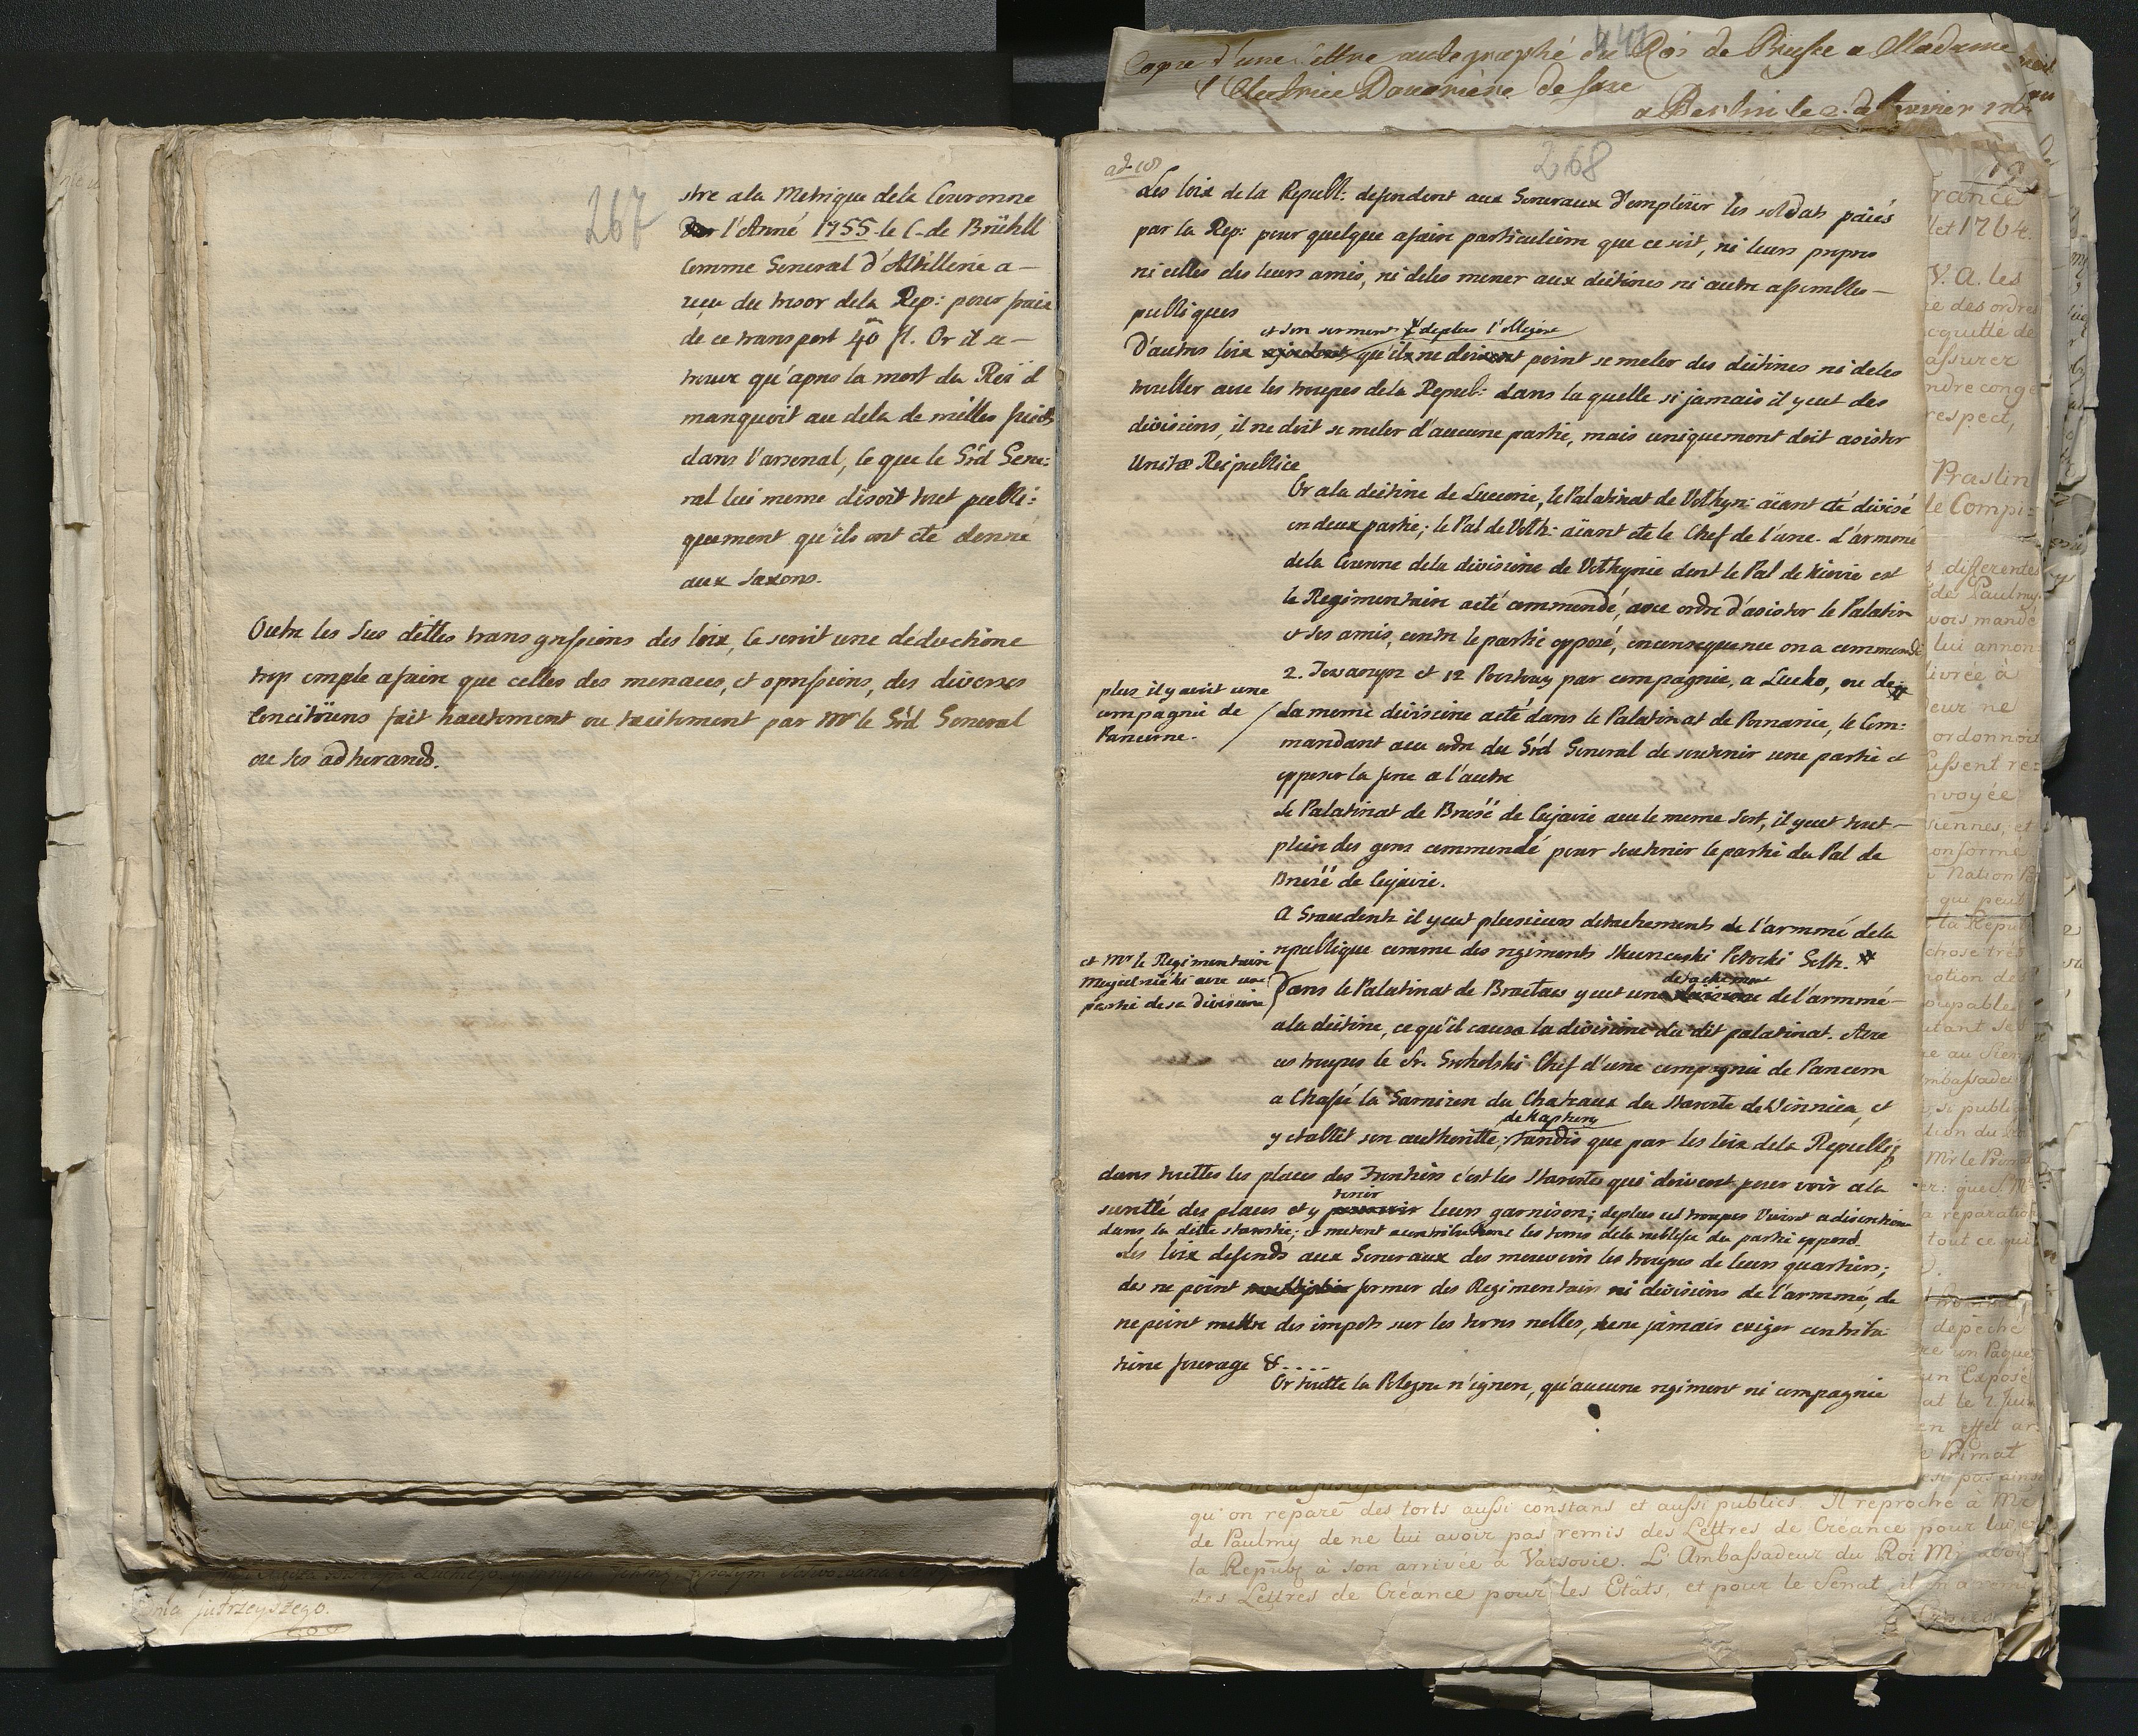 267
stre a la Metrique de la Couronne
l'Anné 1755 le C. de Brühll
comme General d'Altillerie a
reçu du tresor dela Rep: pour frais
de ce transport 40 fl. Or il se
trouve qu'apres la mort du Roi il
manquoit au dela de milles fusils
dans l'arsenal, ce que le Grd Gene:
ral lui meme disoit tout publi:
quement qu'ils ont eté donné
aux Saxons.
Outre les sus dittes transgressions des loix, ce seroit une deductione
trop ample a faire que celles des menaces, et opressions, des diverses
Concitoiens fait hautement ou tacitement par Mr le Grd General
ou ses adherands.
nia jutrzeyszego.
Copie d'une lettre autographé du Roi de Prusse a Madame
l'Electrice Douariere de Saxe
a Berlin le 2. de
268
Les loix de la Republ: defendent aux Generaux d'emploiir les soldats paiés
par la Rep: pour quelque afaire particuliere que ce soit, ni leurs propres
ni celles des leurs amis, ni deles mener aux dietines ni autre assemblés
publiques
et son serment & deplus l'oblige
D'autres loix qu'il ne doit point se meler des dietines ni deles
troubler avec les troupes dela Republ: dans la quelle si jamais il y eut des
divisions, il ne doit se meler d'aucune partie, mais uniquement doit asister
Unitæ Reipublice
Or a la dietine de Luceorie, le Palatinat de Volhyn: aïant eté divisé
en deux partie; le Pal de Volh: aïant ete le Chef de l'une. L'armeé
dela Couronne dela divisione de Volhynie dont le Pal de Kiovie est
le Regimentaire a eté commendé, avec ordre d'asister le Palatin
et ses amis, contre le partie opposé, en consequence on a commendé
2. Towarzyz et 12 Pocztowy par compagnie, a Lucko, ou de
plus il y avoit une
compagnie de
Pancerne.
La meme divisione a eté dans le Palatinat de Posnanie, le Com:
mandant avec ordre du Grd General de soutenir une partie et
opposer la force a l'autre
Le Palatinat de Brzesć de Cujavie a eu le meme sort, il y eut tout
plein des gens commendé pour soutenir le partie du Pal de
Brzesć de Cujavie.
A Graudentz il y eut plusieurs detachements de l'armmé dela
republique comme des regiments Skurzewski Potocki Goltz.
et Mr le Regimentaire
avec une
partie de sa divisione
detachement
Dans le Palatinat de Braclaw y eut une de l'armmé
a la dietine, ce qu'il causa la divisione du dit palatinat. Avec
ces troupes le Sr. Grocholski Chef d'une compagnie de Pancern
a Chassé la Garnison du Chateaux du Staroste de Winnica, et
y etablit son authoritte; tandis que par les loix dela Republiq
dans touttes les places des frontiers c'est les Starostes qui doivent pour voir ala
tenir
sureté des places et y leurs garnison; deplus ces troupes vivent a discretione
dans la ditte starostie; et metent a contributione les terres dela noblesse du partie opposé.
Les loix defends aux Generaux des mouvoir les troupes de leurs quartiers;
des ne point former des Regimentair ni divisions de l'armmé, de
ne point mettre des impots sur les terres nobles, jamais exiger contribu
tione fourage &....
Or toutte la Pologne n'ignore, qu'aucune regiment ni compagnie
rance
let 1764.
V. A. les
ie des ordres
cquitté de
assurer
ndre congé
respect,
Praslin
le Compi:
s differentes
de Paulmy
vois mandé
lui annon:
livrée à
eur ne
ordonnoit
ussent re:
nvoyée
siennes, et
conforme
Nation Po
qui peut
la Repub
chose très
notion des
coupables
Mr le Primat
a reparation
tout ce qui
depêche
un Paquet
un Exposé
en effet ar
Primat
qu'on repare des torts aussi constans et aussi publics. Il reproche à Mr
de Paulmy de ne lui avoir pas remis des Lettres de Créance pour lui, et
la Republ à son arrivée à Varsovie. L'Ambassadeur du Roi Mr avoit
des Lettres de Créance pour les Etâts, et pour le Senat, il